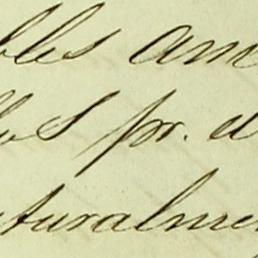 bles am
llos pr. d
turalmen